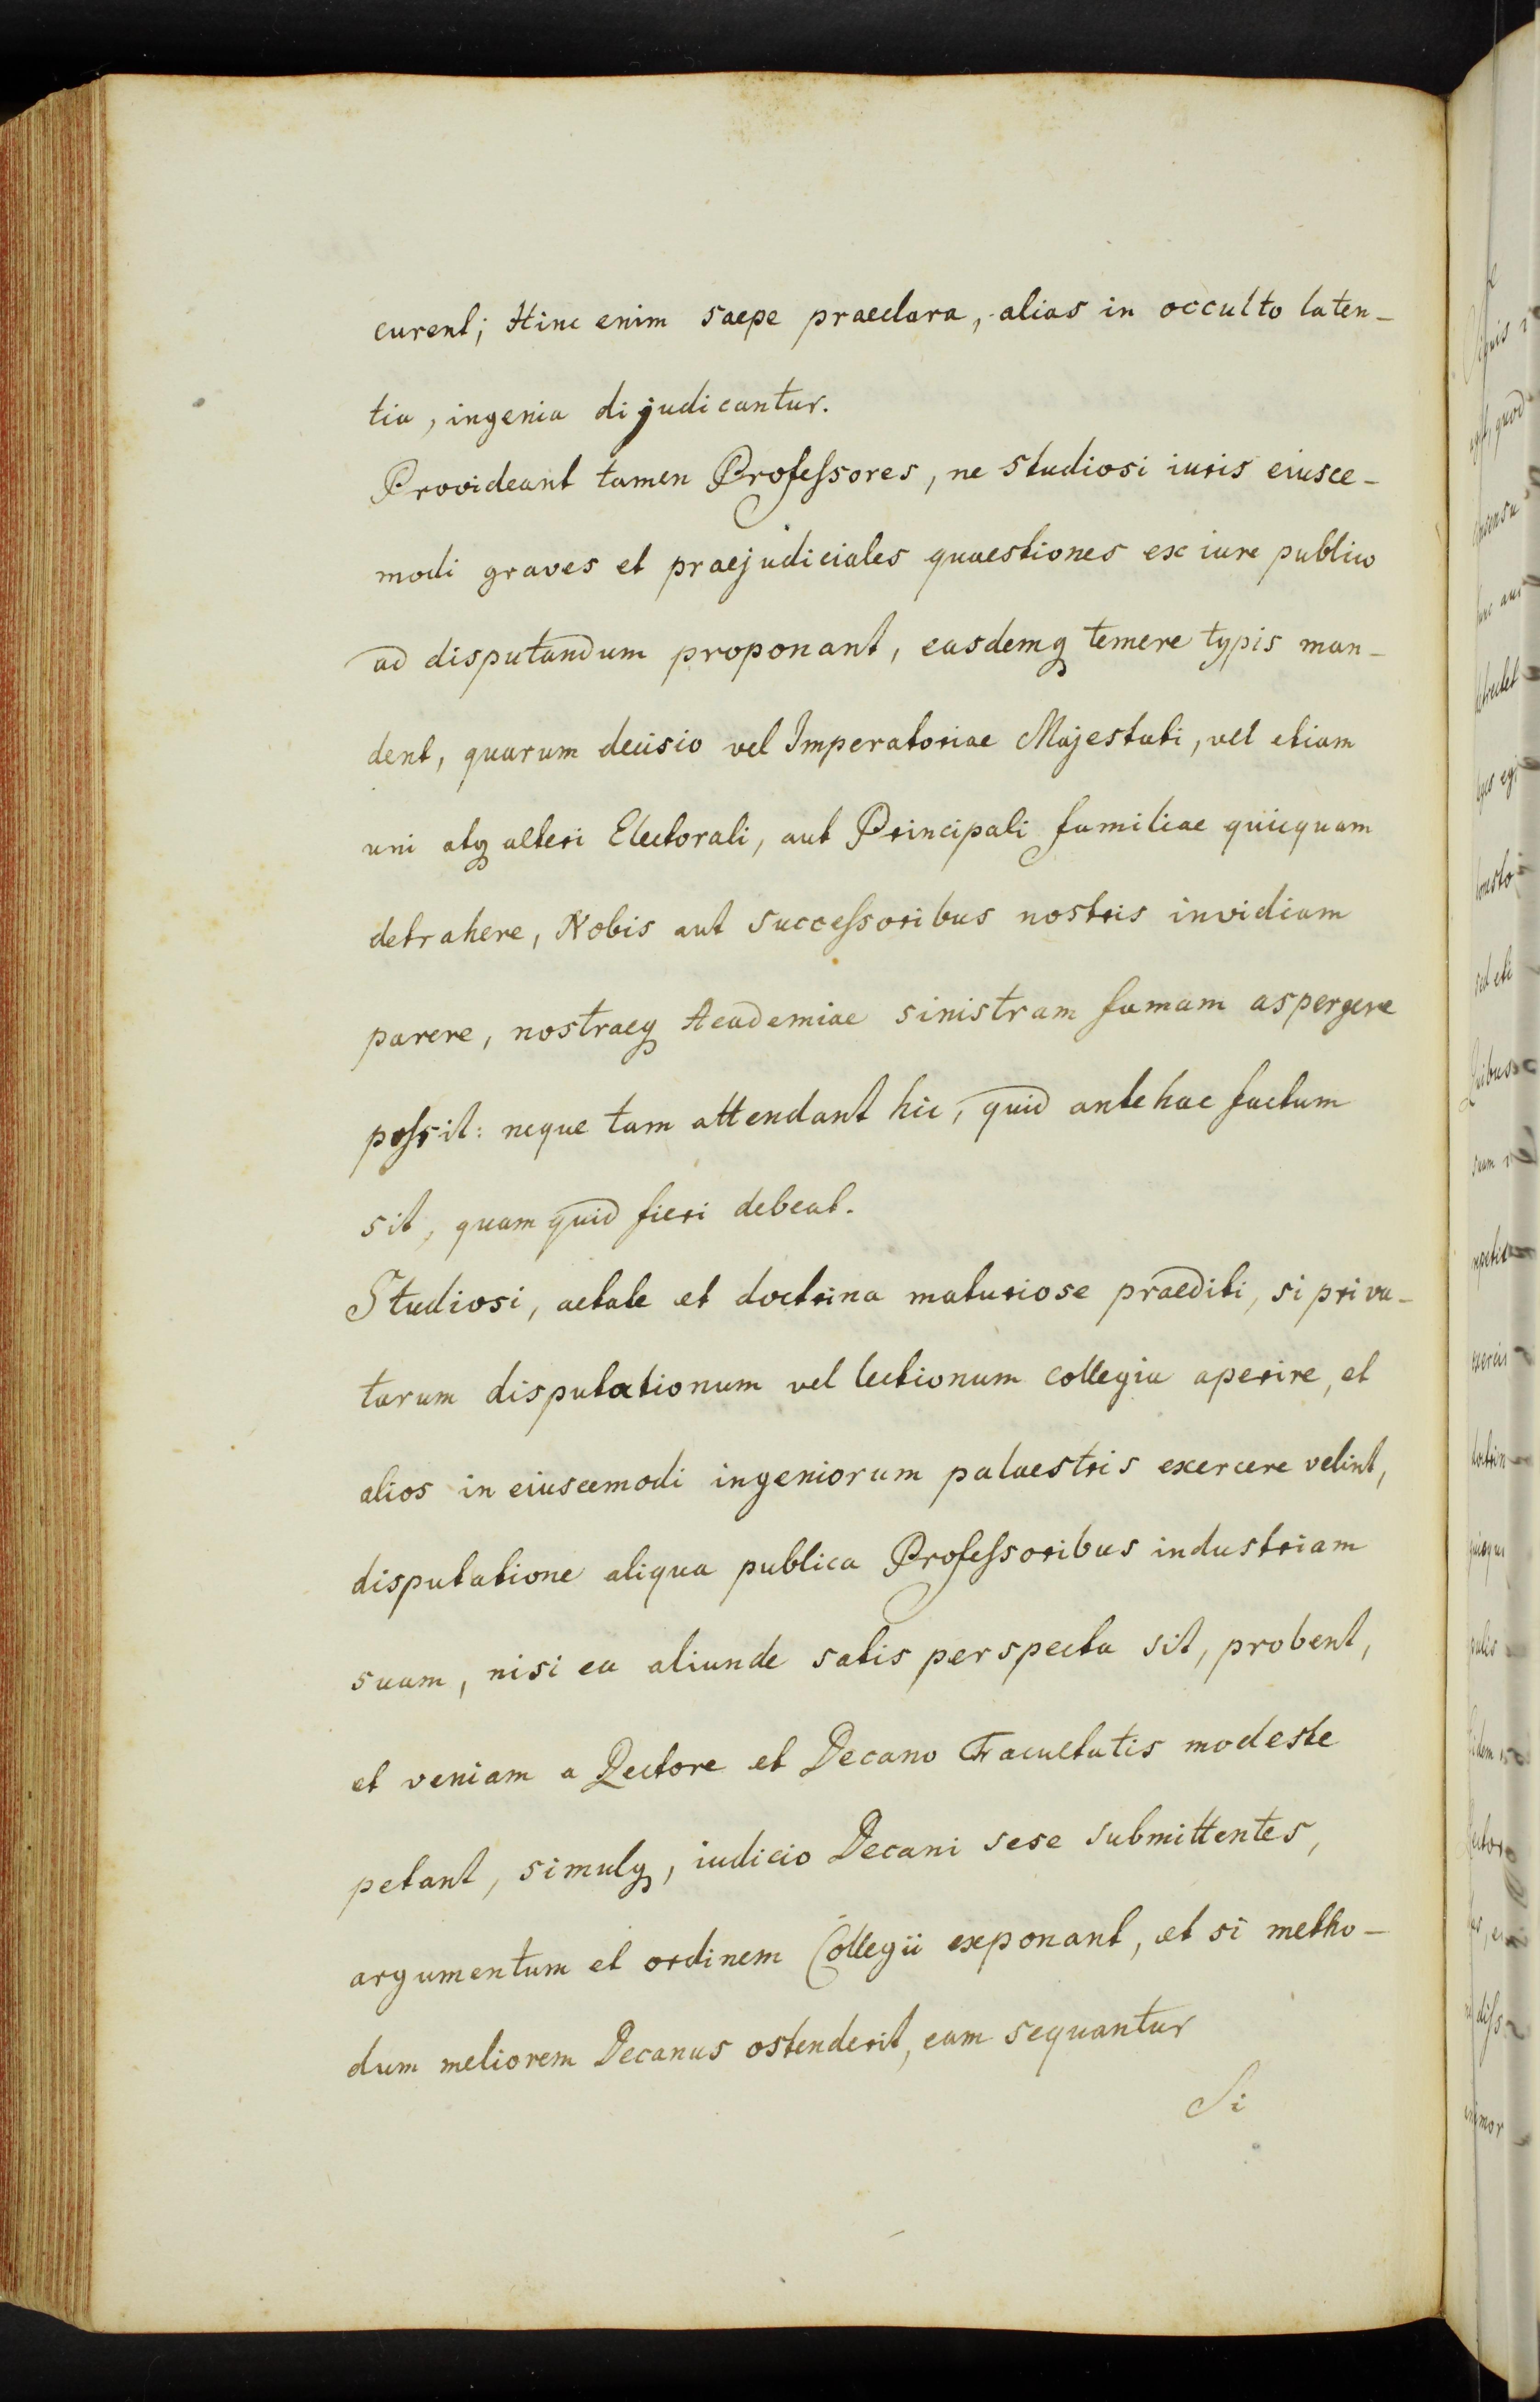 curent; Hinc enim saepe praeclara, alias in occulto laten-
tia, ingenia dijudicantur.
Provideant tamen Profeſsores, ne studiosi iuris eiusce-
modi graves et praejudiciales quaestiones ex iure publico
ad disputandum proponant, easdemq temere typis man-
dent, quarum decisio vel Imperatoriae Majestati, vel etiam
uni atq alteri Electorali, aut Principali familiae quicquam
detrahere, Nobis aut succeſsoribus nostris invidiam
parere, nostraeq Academiae sinistram famam aspergere
poſsit: neque tam attendant hic, quid antehac factum
sit, quam quid fieri debeat.
Studiosi, aetate et doctrina maturiose praediti, si priva-
tarum disputationum vel lectionum collegia aperire, et
alios in eiuscemodi ingeniorum palaestris exercere velint,
disputatione aliqua publica Profeſsoribus industriam
suam, nisi ea aliunde satis perspecta sit, probent,
et veniam a Rectore et Decano Facultatis modeste
petant, simulq, iudicio Decani sese submittentes,
argumentum et ordinem Collegii exponant, et si metho-
dum meliorem Decanus ostenderit, eam sequantur
Si